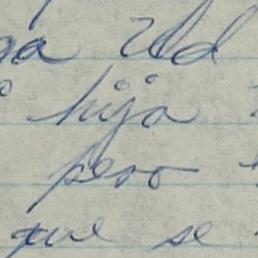 Ud
hija
pero
que se